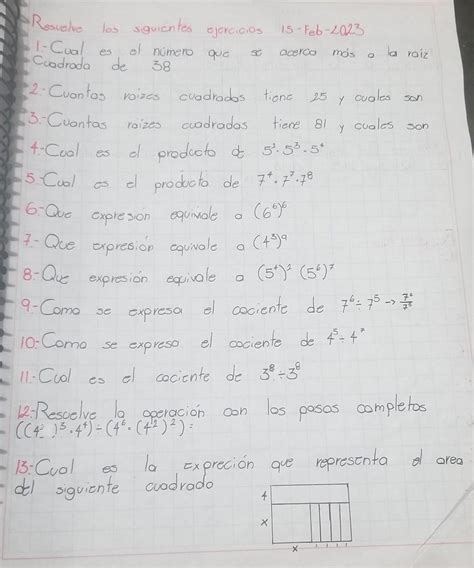 Resuelve los siguientes ejercicios 15-Feb-2023
1.-Cual es el número que se acerca más a la raíz
Cuadrada de 38
2.-Cuantas raizes cuadradas tiene 25 y cuales son
3.-Cuantas raizes cuadradas tiene 81 y cuales son
4.-Cual es el producto de 5³·5³·5⁴
5.-Cual es el producto de 7⁴·7⁷·7⁸
6.-Que expresión equivale a (6⁶)⁶
7.-Que expresión equivale a (4⁵)⁹
8.-Que expresión equivale a (5⁴)² (5⁶)⁷
9.-Como se expresa el cociente de 7⁶÷7⁵→7⁶/7⁵
10.-Como se expresa el cociente de 4⁵÷4⁷
11.-Cual es el cociente de 3⁸÷3⁸
12.-Resuelve la operación con los pasos completos
((4² )³·4⁴)÷(4⁶·(4²)²)=
13.-Cual es la Expreción que representa el area
del siguiente cuadrado
4
x
x